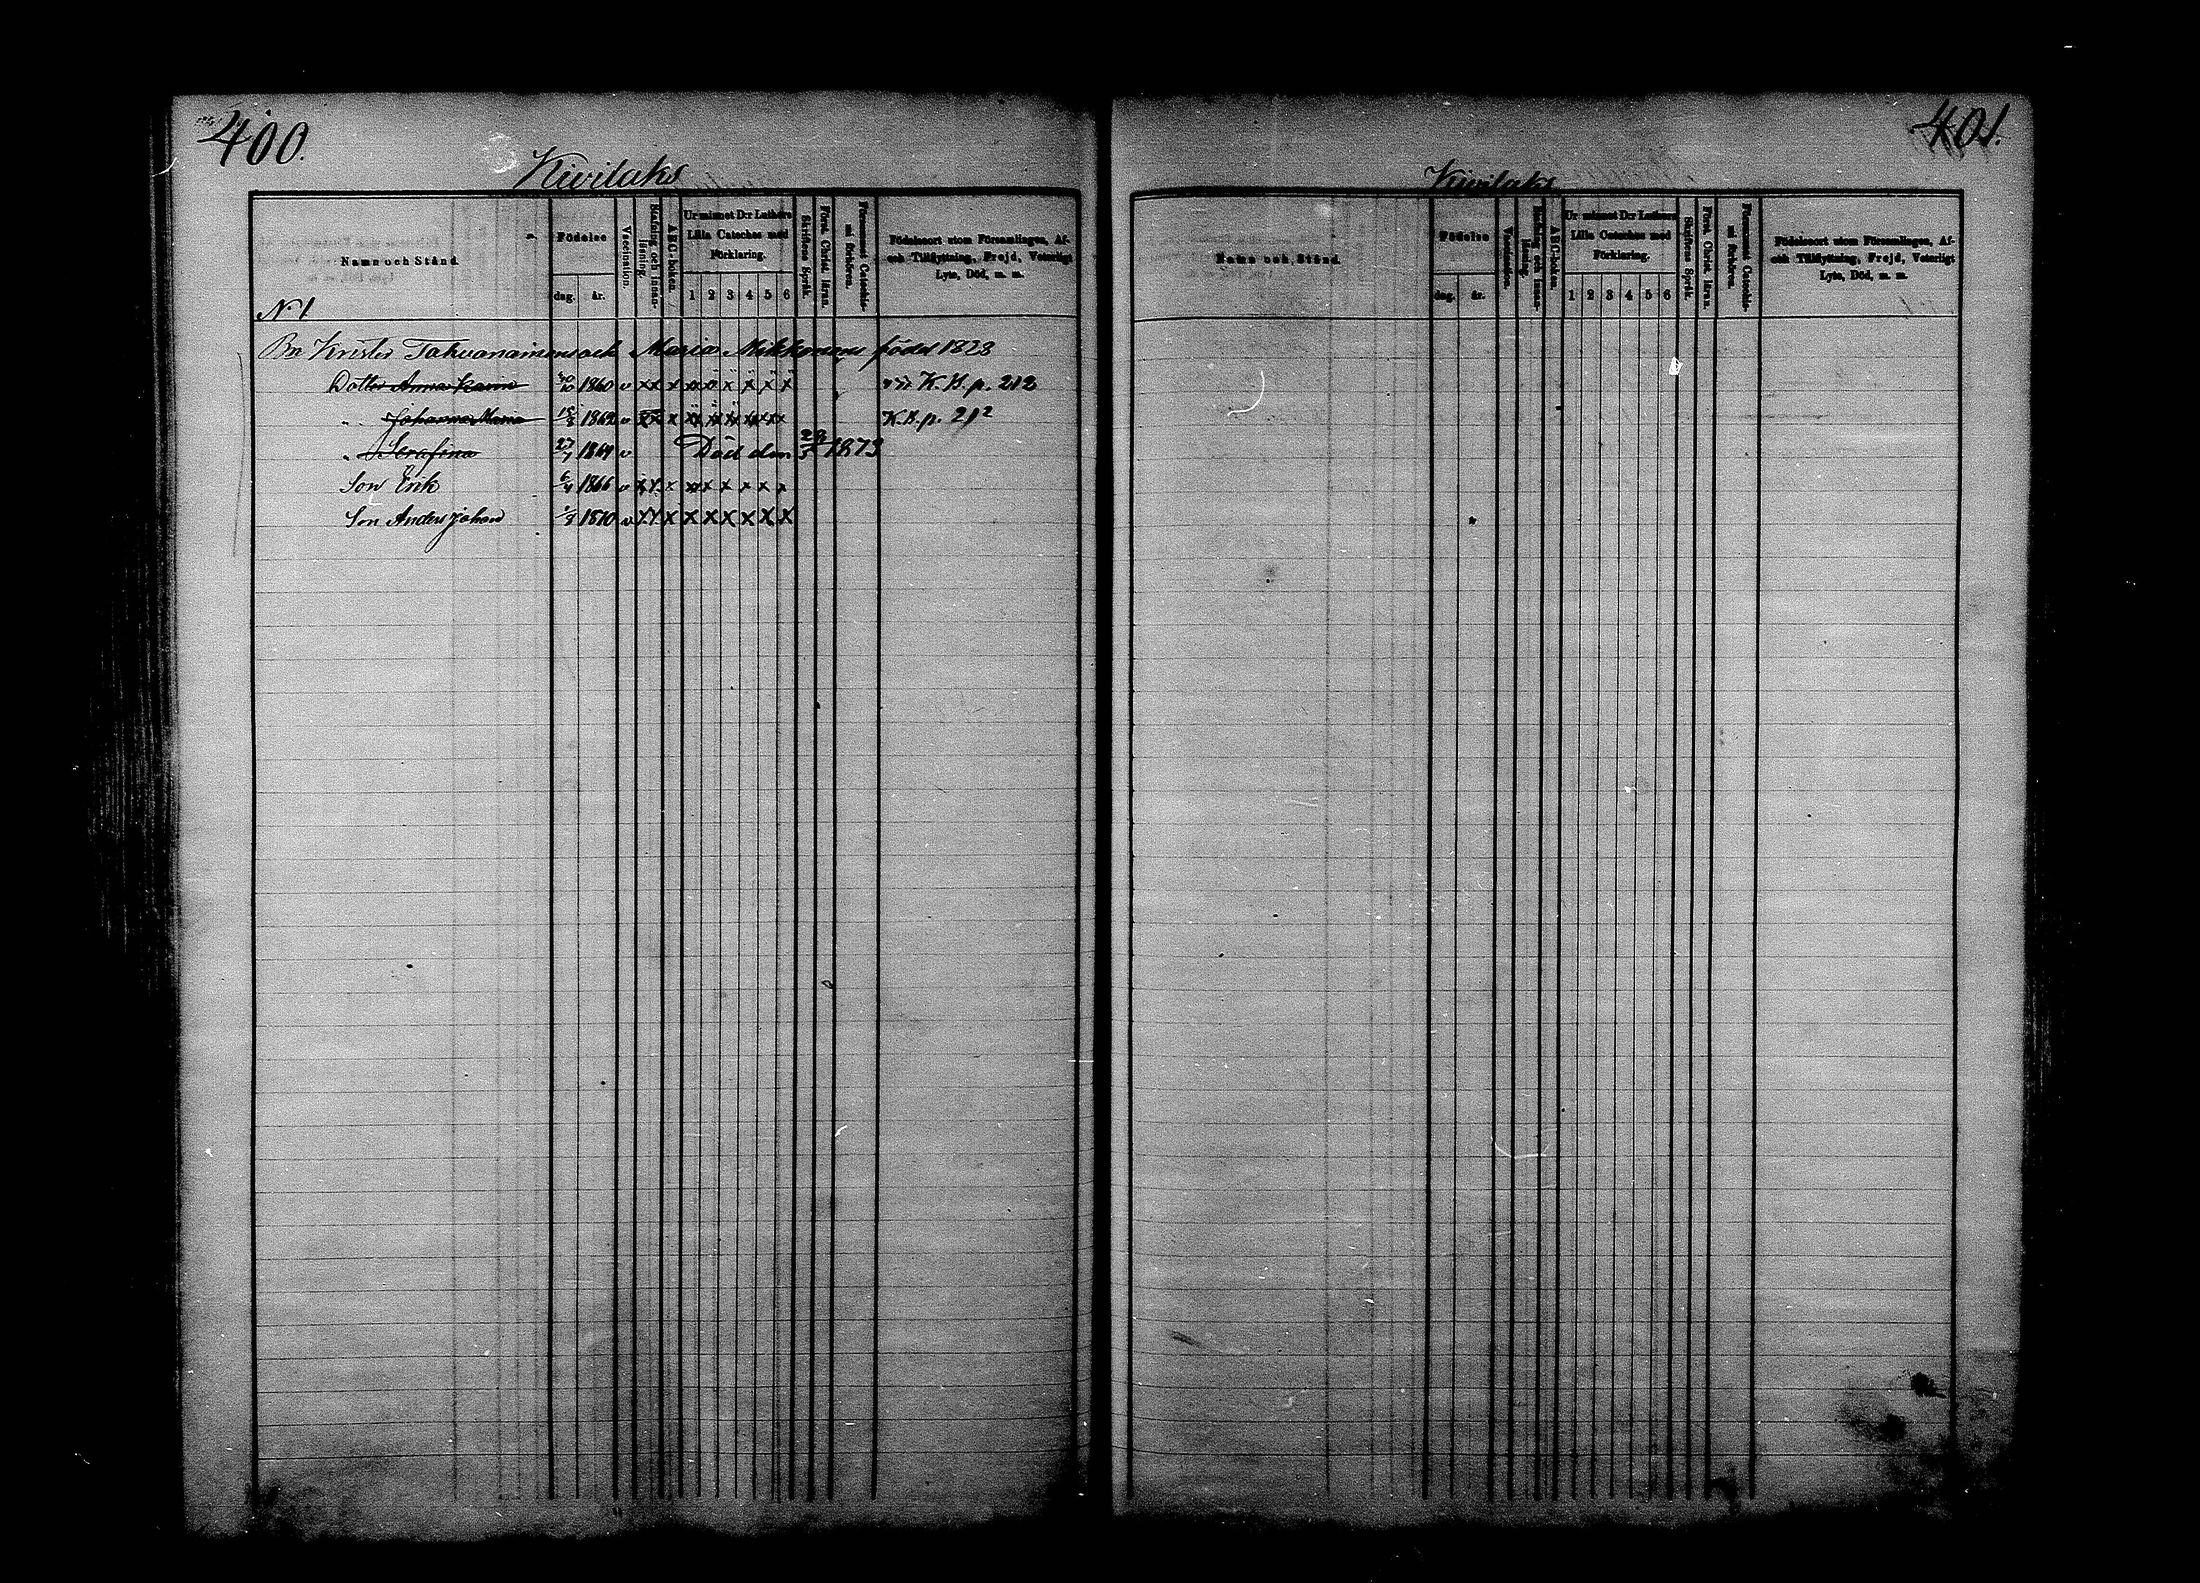 400.
Kivilaks
Namn och Stånd.
Födelse
dag. år.
Vaccination.
Stafning och Innan-
läsning.
ABC-boken.
Ur minnet D:r Luthers
Lilla Cateches med
Förklaring.
1 2 3 4 5 6
Skriftens Språk.
Först. Christ. läran.
Försummat Catechis-
mi förhören.
Födelseort utom Församlingen, Af-
och Tillflyttning, Frejd, Veterligt
Lyte, Död, m. m.
N 1
Bn Krister Takvanainens och Maria Mikkonens född 1828
Dotter Anna Karin 1860 v xx x x x x x x x K.B. p. 212
" Johanna Maria 15/5 1862 v xx x x x x x x x K.B. p. 212
" Serafina 27/7 1864 v Död den 1873
Son Erik 6/4 1866 v x x x x x x x x x
Son Anders Johan 1870 v x x x x x x x x x
401.
Kivilaks
Namn och Stånd.
Födelse
dag. år.
Vaccination.
Stafning och Innan-
läsning.
ABC-boken.
Ur minnet D:r Luthers
Lilla Cateches med
Förklaring.
1 2 3 4 5 6
Skriftens Språk.
Först. Christ. läran.
Försummat Catechis-
mi förhören.
Födelseort utom Församlingen, Af-
och Tillflyttning, Frejd, Veterligt
Lyte, Död, m. m.